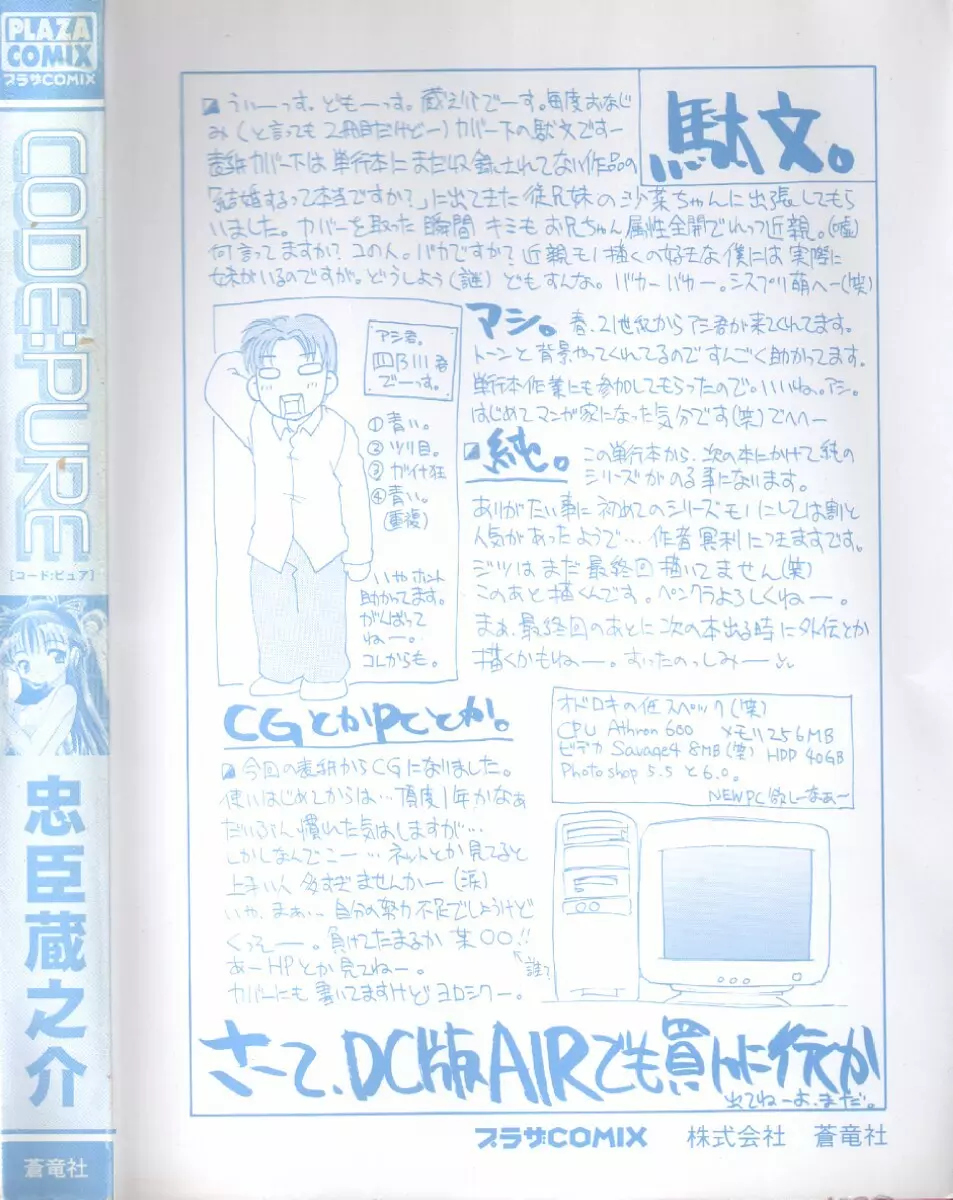 PLAZA
COMIX
プラザCOMIX
CODE:PURE
[コード:ピュア]
忠臣蔵之介
蒼竜社
駄文。
うぃーっす。どもーっす。蔵之介でーす。毎度おなじ
み(と言っても2冊目だけどー)カバー下の駄文ですー
表紙カバー下は単行本にまだ収録されてない作品の
「結婚するって本当ですか?」に出てきた従兄妹の沙菜ちゃんに出張してもら
いました。カバーを取った瞬間 キミもお兄ちゃん属性全開でれっつ近親。(嘘)
何言ってますか?この人。バカですか?近親モノ描くの好きな僕には実際に
妹がいるのですが。どうしよう(謎)どもすんな。バカーバカー。シスプリ萌へー(笑)
アシ。
春、21世紀からアシ君が来てくれてます。
トーンと背景やってくれてるのですんごく助かってます。
単行本作業にも参加してもらったので。いいねぇ。アシ。
はじめてマンガ家になった気分です(笑)でへへー
アシ君。
四乃川君
でーっす。
①青い。
②ツリ目。
③ガイナ狂
④青い。
(重複)
いやホント
助かってます。
がんばって
ねー。
コレからも。
純。
この単行本から、次の本にかけて純の
シリーズがのる事になります。
ありがたい事に初めてのシリーズモノにしては割と
人気があったようで…作者冥利につきますです。
ジツはまだ最終回描いてません(笑)
このあと描くんです。ペンクラよろしくねー。
まぁ、最終回のあとに次の本出る時に外伝とか
描くかもねー。おったのっしみー
CGとかPCとか。
今回の表紙からCGになりました。
使いはじめてからは…丁度1年かなぁ
だいぶん慣れた気はしますが…
しかしなんでこー…ネットとか見てると
上手い人多すぎませんかー(涙)
いや、まぁ…自分の努力不足でしょうけど
くっそー。負けてたまるか某○○!!
誰?
あーHPとか見てねー。
カバーにも書いてますけどヨロシクー。
オドロキの低スペック(笑)
CPU Athron 600 メモリ256MB
ビデカ Savage4 8MB(笑) HDD 40GB
Photoshop 5.5と6.0。
NEWPC欲しーなぁ~
さーて、DC版AIRでも買いに行くか
出てねーよ、まだ。
プラザCOMIX 株式会社 蒼竜社